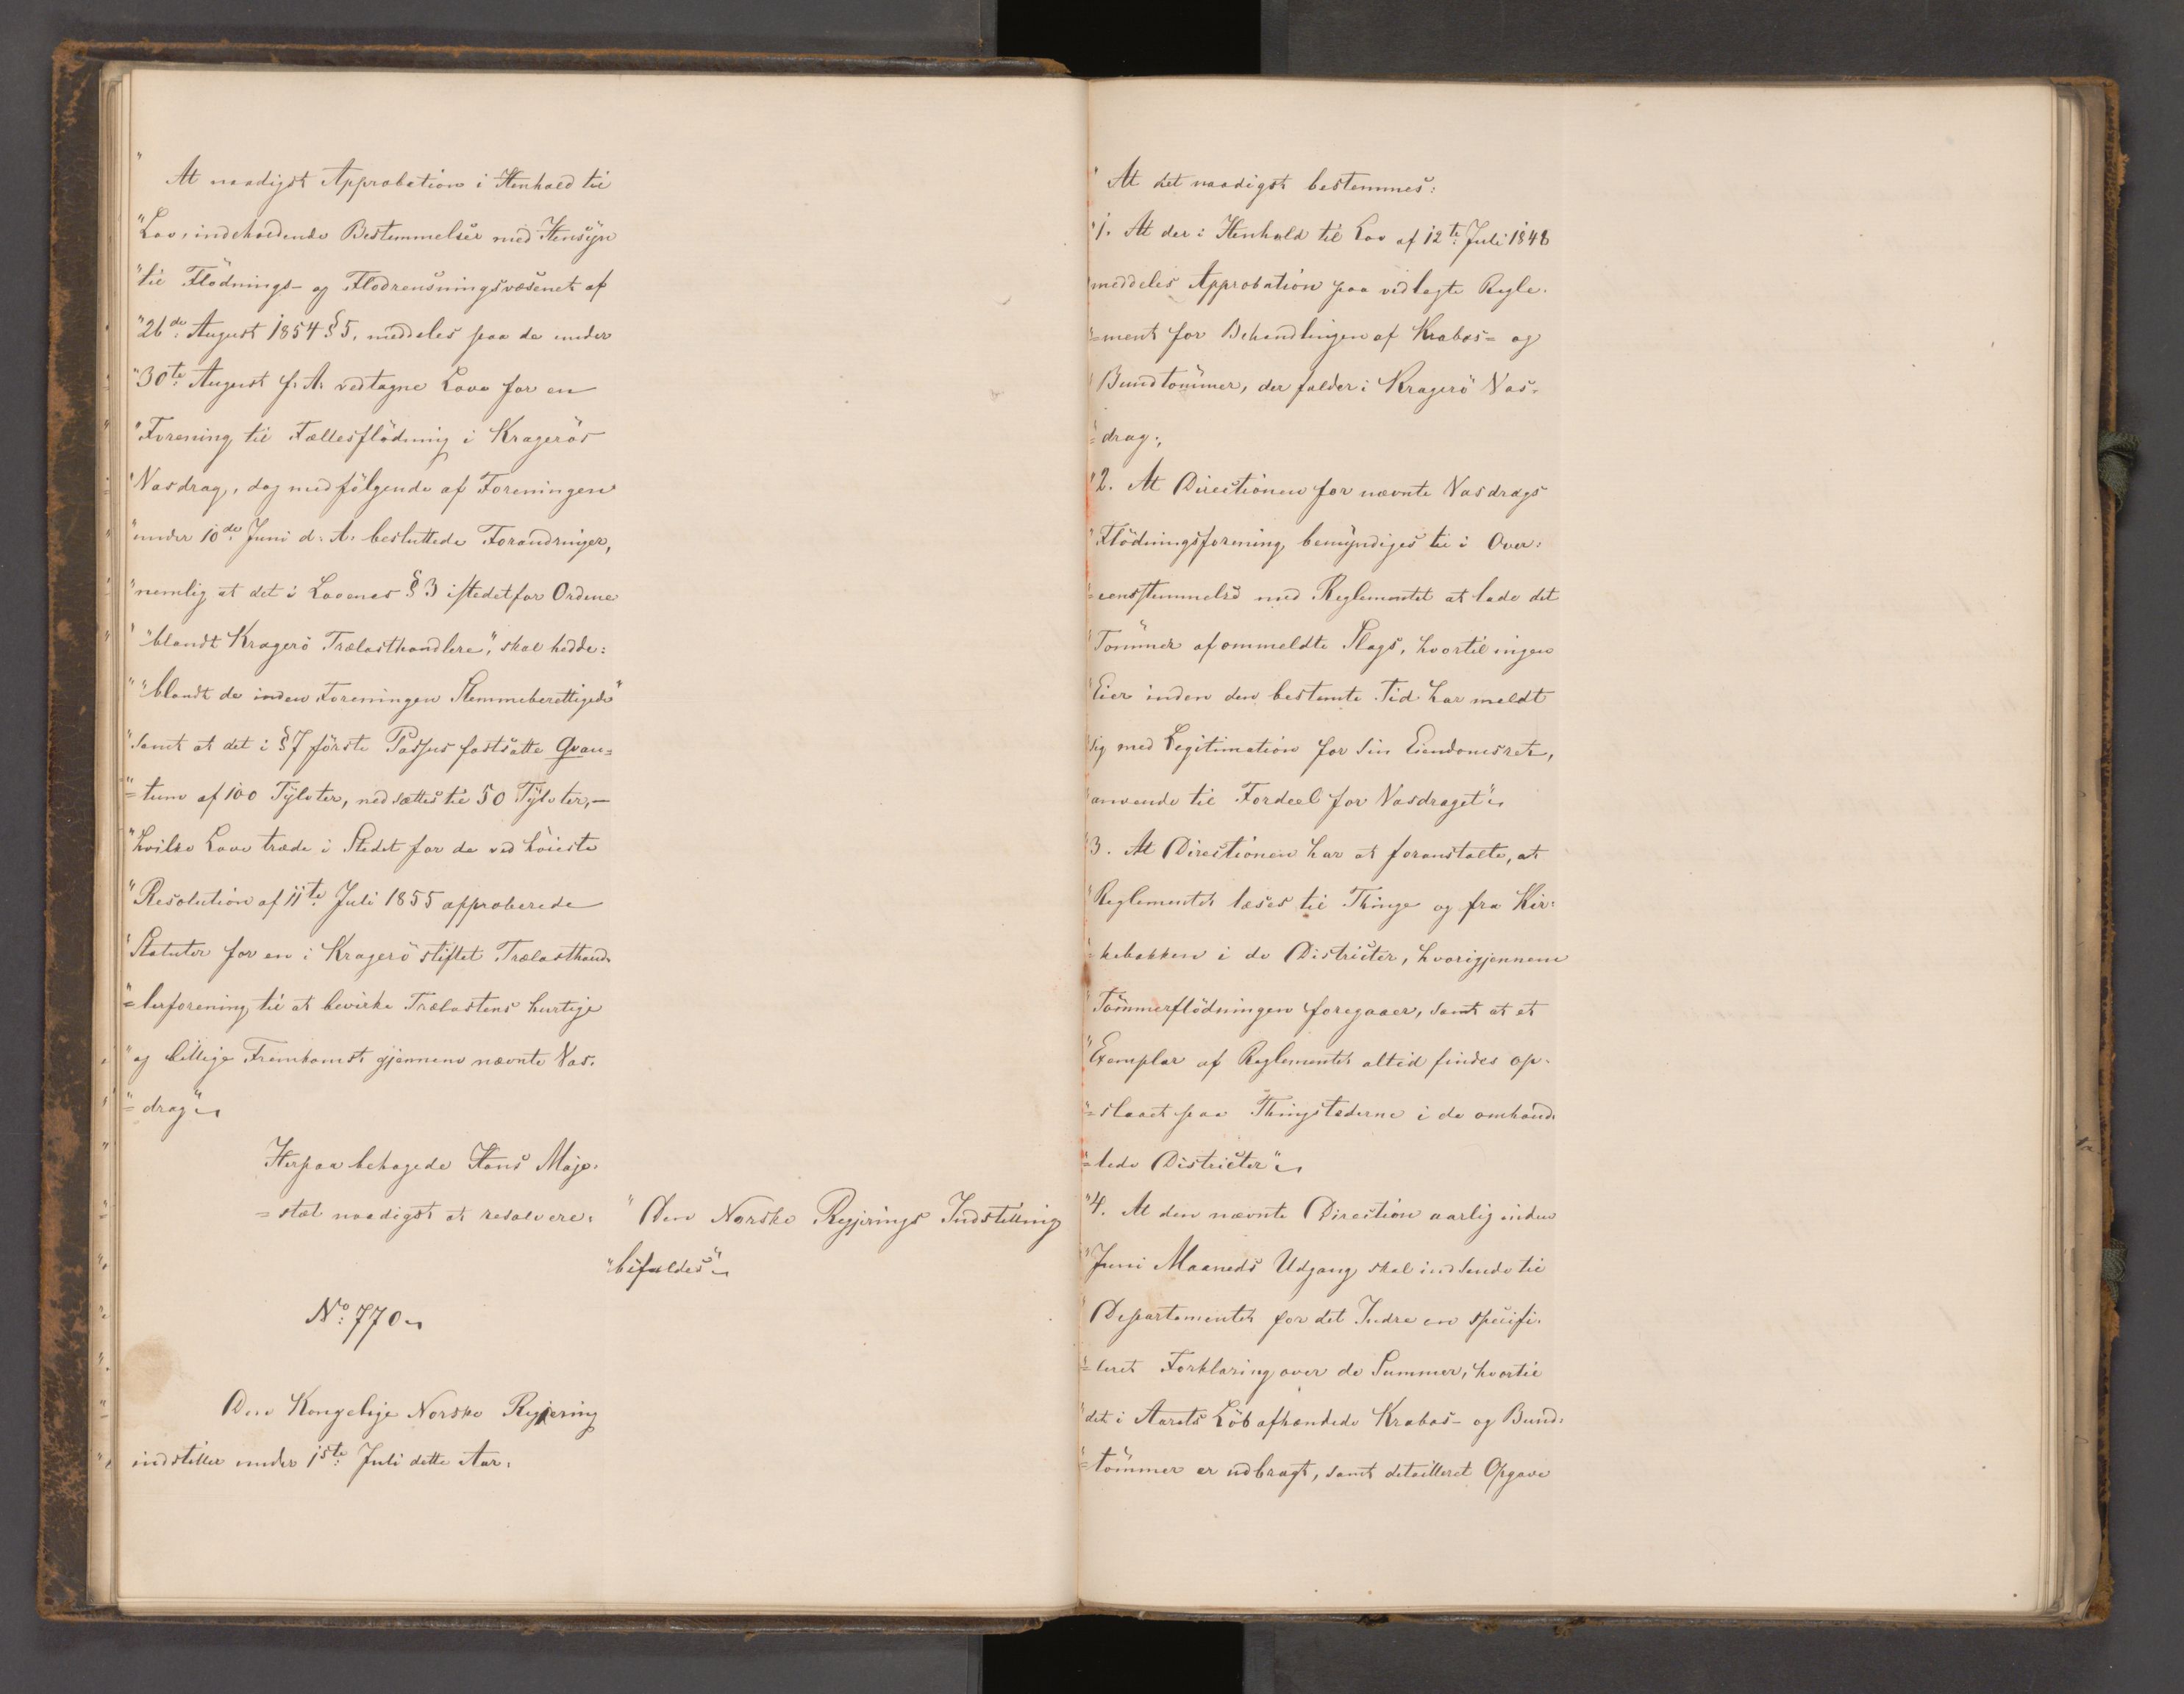 "At naadigst Approbation i Henhold til
"Lov, indeholdende Bestemmelser med Hensyn
"til Flödnings- og Flodrensningsvæsenet af
"26de August 1854 § 5, meddeles paa de under
"30te August f. A. vedtagne Love for en
"Forening til Fællesflödning i Kragerös
"Vasdrag, dog med fölgende af Foreningen
"under 10de Juni d. A. besluttede Forandringer,
"nemlig at det i Lovenes § 3 istedetfor Ordene
""blandt Kragerö Trælasthandlere", skal hedde:
""blandt de inden Foreningen Stemmeberettigede"
"samt at det i § 7 förste Passus fastsatte Qvan=
"=tum af 100 Tylvter, nedsættes til 50 Tylvter,—
"hvilke Love træde i Stedet for de ved höieste
"Resolution af 11te Juli 1855 approberede
"Statuter for en i Kragerö stiftet Trælasthand=
"=lerforening til at bevirke Trælastens hurtige
"og billige Fremkomst gjennem nævnte Vas=
"=drag"
Herpaa behagede Hans Maje=
=stæt naadigst at resolvere:
"Den Norske Regjerings Indstilling
"bifaldes"
No: 770
Den Kongelige Norske Regjering
indstiller under 1ste Juli dette Aar:
"At det naadigst bestemmes:
"1. At der i Henhold til Lov af 12te Juli 1848
"meddeles Approbation paa vedlagte Regle=
"=ment for Behandlingen af Krabas- og
"Bundtömmer, der falder i Kragerö Vas=
"=drag;
"2. At Directionen for nævnte Vasdrags
"Flödningsforening bemyndiges til i Over=
"=eensstemmelse med Reglementet at lade det
"Tömmer af ommeldte Slags, hvortil ingen
"Eier inden den bestemte Tid har meldt
"sig med Legitimation for sin Eiendomsret,
"anvende til Fordeel for Vasdraget"
"3. At Directionen har at foranstalte, at
"Reglementet læses til Thinge og fra Kir=
"=kebakken i de Districter, hvorigjennem
"Tömmerflödningen foregaaer, samt at et
"Exemplar af Reglementet altid findes op=
"=slaaet paa Thingstederne i de omhand=
"=lede Districter"
"4. At den nævnte Direction aarlig inden
"Juni Maaneds Udgang skal indsende til
"Departementet for det Indre en specifi=
"=ceret Forklaring over de Summer, hvortil
"det i Aarets Löb afhændede Krabas- og Bund=
"=tömmer er udbragt, samt detailleret Opgave